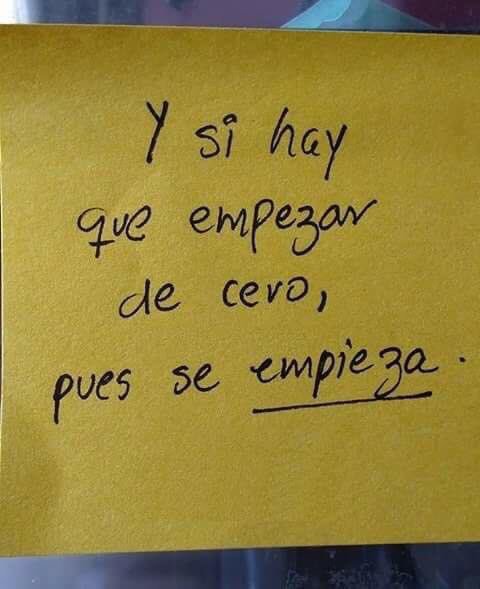 Y si hay
que empezar
de cero,
pues se empieza.